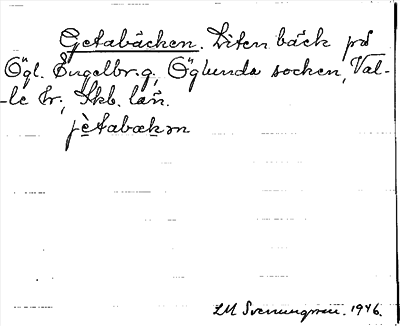 Getabäcken. Liten bäck på
Ögl. Engelbr.g, Öglunda socken, Val-
-le hr; Skb. län.
jètabækən
LM Svenungsson. 1946.